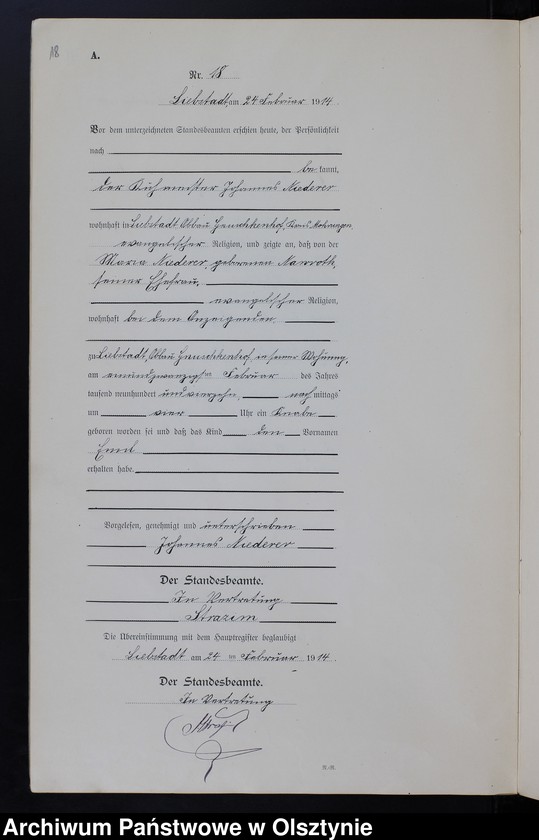 18
A.
Nr. 18
Liebstadt, am 24 Februar 1914
Vor dem unterzeichneten Standesbeamten erschien heute, der Persönlichkeit
nach
be kannt,
der Kuhmeister Johannes Niederer
wohnhaft in Liebstadt Abbau Henschkenhof, Kreis Mohrungen
evangelischer Religion, und zeigte an, daß von der
Maria Niederer, geborenen Nawroth,
seiner Ehefrau,
evangelischer Religion,
wohnhaft bei dem Anzeigenden,
zu Liebstadt, Abbau Henschkenhof in seiner Wohnung,
am einundzwanzigsten Februar des Jahres
tausend neunhundert undvierzehn nach mittags
um vier Uhr ein Knabe
geboren worden sei und daß das Kind den Vornamen
Emil
erhalten habe.
Vorgelesen, genehmigt und unterschrieben
Johannes Niederer
Der Standesbeamte.
In Vertretung
Strazim
Die Übereinstimmung mit dem Hauptregister beglaubigt
Liebstadt am 24 ten Februar 1914.
Der Standesbeamte.
In Vertretung
Archiwum Państwowe w Olsztynie